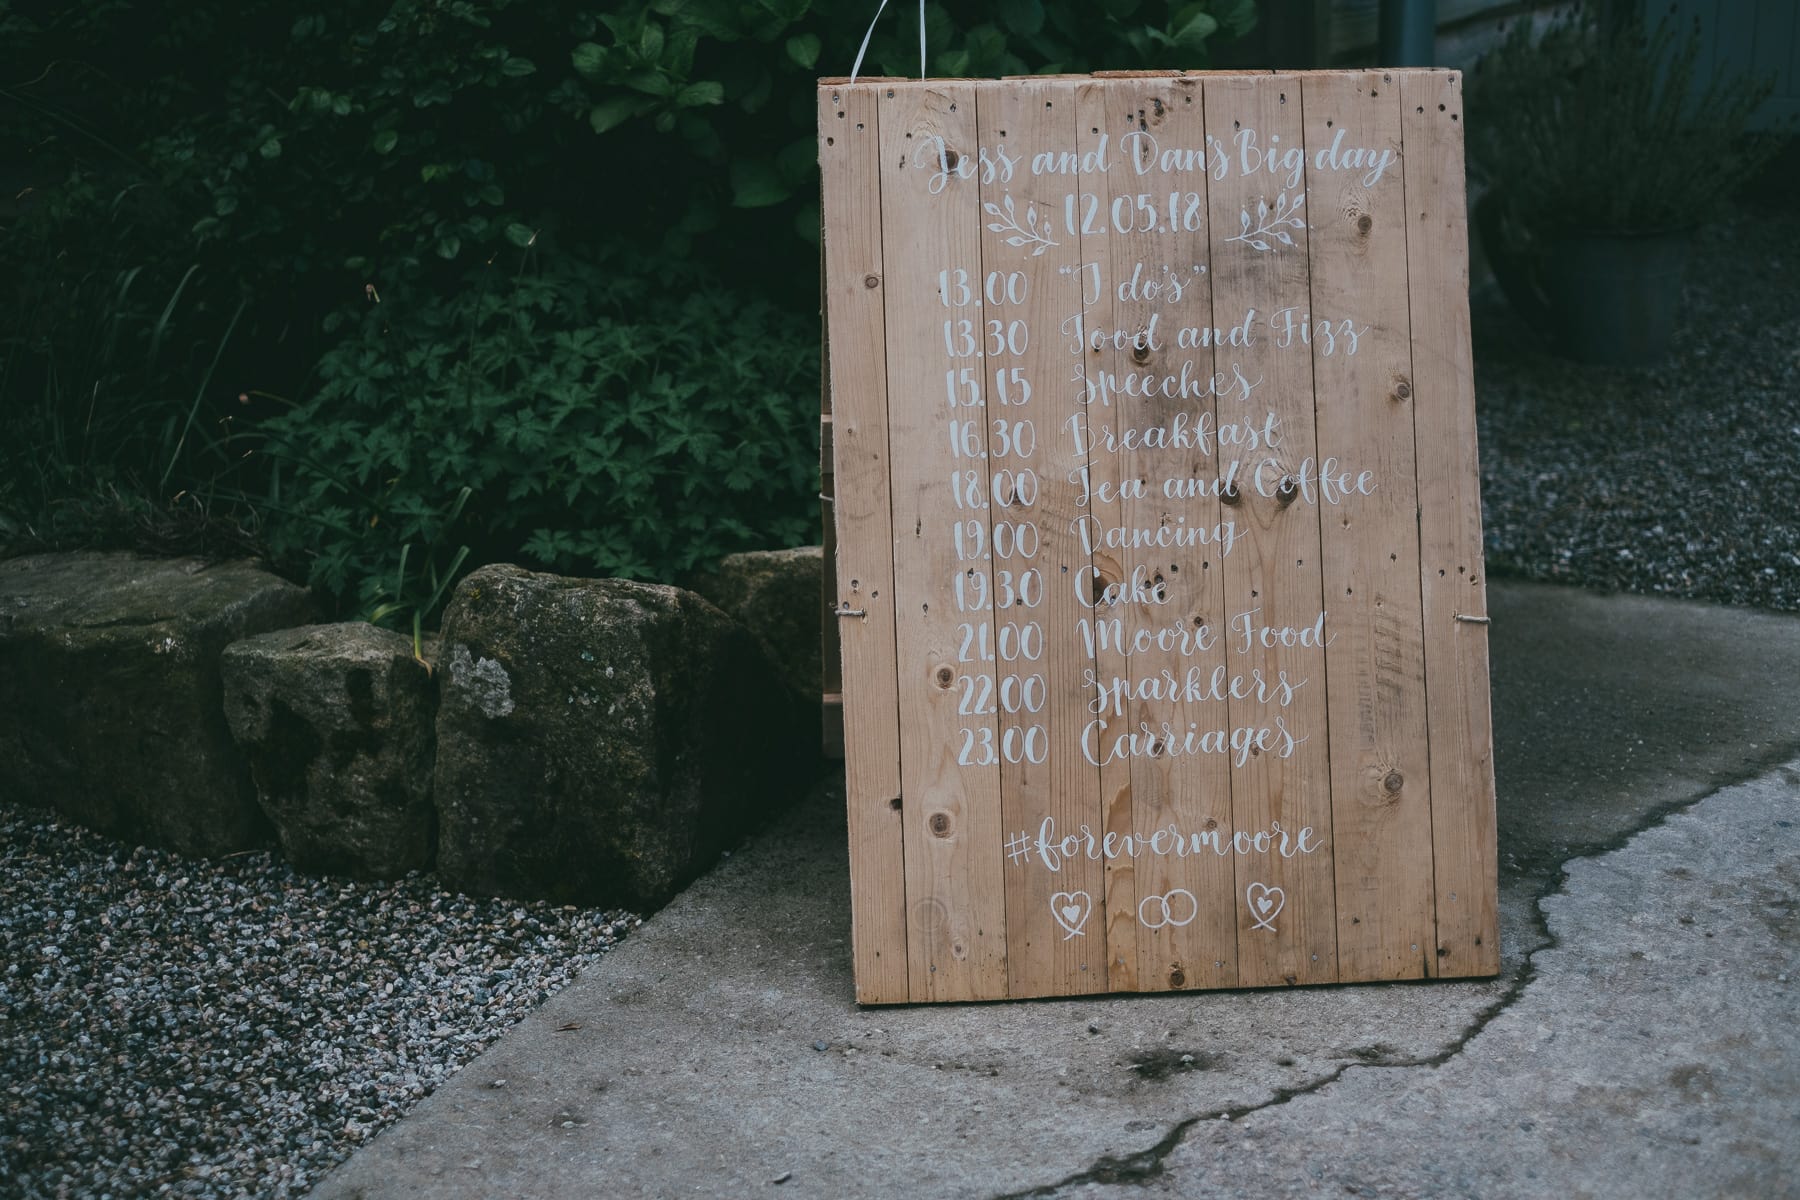 Jess and Dan's Big day
12.05.18
13.00 "I do's"
13.30 Food and Fizz
15.15 Speeches
16.30 Breakfast
18.00 Tea and Coffee
19.00 Dancing
19.30 Cake
21.00 Moore Food
22.00 Sparklers
23.00 Carriages
#forevermoore